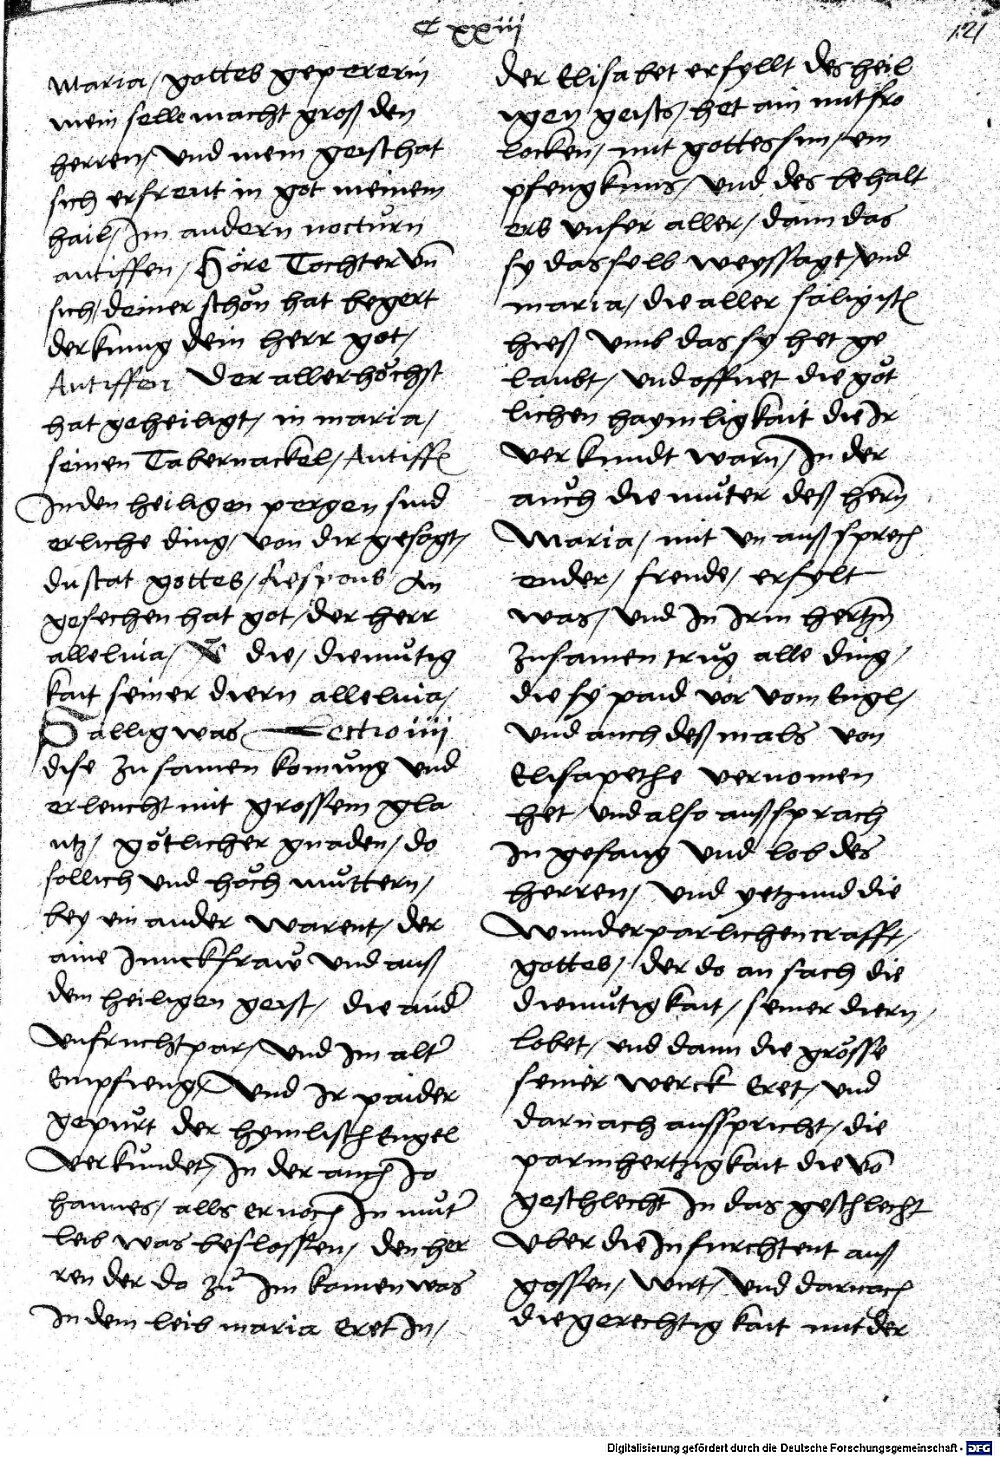 C xxiij
121
Maria / gottes gepererin
mein selle macht groß den
herren / Vnd mein geist hat
sich erfreut in got meinem
hail / Im andern nocturn
antiffen / Höre Tochter vn̄
sich / deiner schön hat begert
der kunig dein herr got /
Antiffen Der aller höchst
hat geheiligt / in maria /
seinen Tabernackel / Antiff
In den heiligen pergen sind
erliche ding / von dir gesagt /
du stat gottes / Respons An
gesechen hat got / der herr
alleluia / V̄ die / diemůtig
kait seiner diern alleluia /
Sällig was Lectio iiij
dise zu samen komůng vnd
erleucht mit grossem gla
ntz / götlicher gnaden / do
sollich vnd höch můttern /
bey ein ander warent / der
aine Junckfraw vnd auß
dem heiligen geist / die and̄
Vnfruchtpar / Vnd im alt̄
Empfieng / Vnd Ir paider
gepůrt der hymlisch Engel
Verkůndet / In der auch Jo
hannes / alls er noch In můt̄
leib was beslossen / den her
ren der do zů Im komen was
In dem leib maria Eret In /
der Elisabet erfyllt des heil
igen geists / het ain mitfro
locken / mit gottes sun / em
pfengknus / Vnd des behalt
ers vnser aller / dann das
sy dasselb weyssagt / Vnd
maria / die aller säligist
hieß Vmb das sy het ge
laubt / Vnd offnet die göt
lichen haymligkait die Ir
verkundt warn / In der
auch die můter deß herrn
Maria / mit vn auß sprech
ender / freude / erfylt
was / Vnd In Irm hertzn̄
zusamen trůg alle ding /
die sy paid vor vom Engl /
Vnd auch deß mals von
Elisapethe vernomen
het / Vnd also aussprach
In gesang Vnd lob des
herren / Vnd yetzund die
Wunderparlichen crafft /
gottes / der do an sach die
diemůtigkait / seiner diern /
lobet / vnd dann die grösse
seiner werck Eret / vnd
darnach ausspricht / die
parmhertzigkait die vō
geschlecht In das geschlecht
Vber die In furchtent auß
gossen / Wirt / Vnd darnach
die gerechtigkait mit der
Digitalisierung gefördert durch die Deutsche Forschungsgemeinschaft - DFG